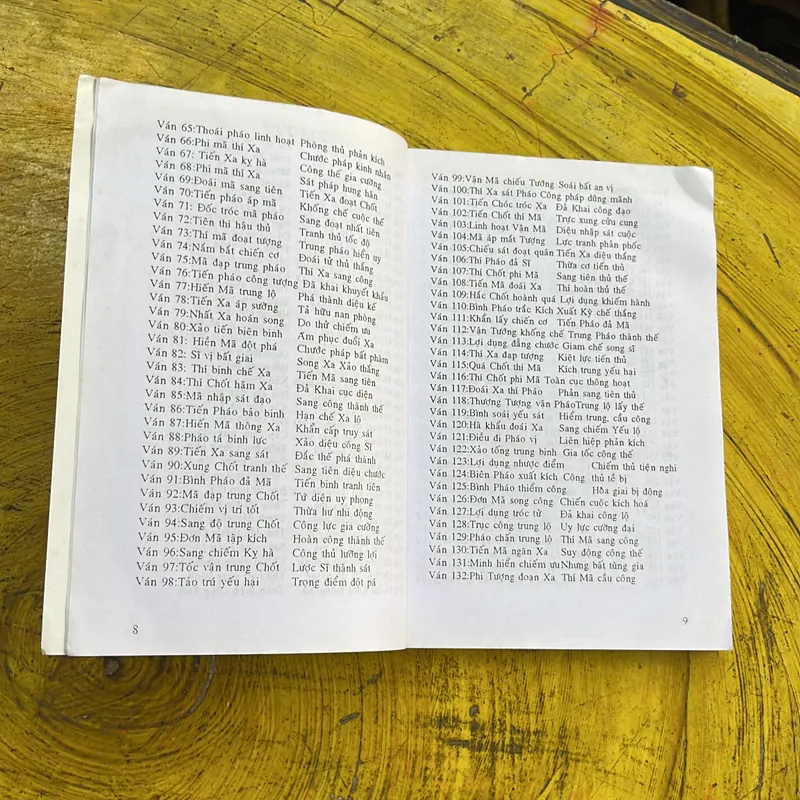 Ván 65:Thoái pháo linh hoạt Phòng thủ phản kích
Ván 66:Phi mã thí Xa Chước pháp kinh nhân
Ván 67: Tiến Xa kỵ hà Công thế gia cường
Ván 68:Phi mã thí Xa Sát pháp hung hãn
Ván 69:Đoái mã sang tiên Tiến Xa đoạt Chốt
Ván 70:Tiến pháo áp mã Khống chế cuộc thế
Ván 71: Đốc tróc mã pháo Sang đoạt nhất tiên
Ván 72:Tiên thí hậu thủ Tranh thủ tốc độ
Ván 73:Thí mã đoạt tượng Trung pháo hiển uy
Ván 74:Nắm bắt chiến cơ Đoái tử thủ thắng
Ván 75:Mã đạp trung pháo Thí Xa sang công
Ván 76:Tiến pháo công tượng Đã khai khuyết khẩu
Ván 77:Hiến Mã trung lộ Phá thành diệu kế
Ván 78:Tiến Xa áp sường Tả hữu nan phòng
Ván 79:Nhất Xa hoán song Do thử chiếm ưu
Ván 80:Xảo tiến biên binh Ám phục đuổi Xa
Ván 81: Hiến Mã đột phá Chước pháp bất phàm
Ván 82: Sĩ vị bất giai Song Xa Xảo thắng
Ván 83: Thí binh chế Xa Tiến Mã sang tiên
Ván 84:Thí Chốt hãm Xa Đả Khai cục diện
Ván 85:Mã nhập sát đạo Sang công thành thế
Ván 86:Tiến Pháo bảo binh Hạn chế Xa lộ
Ván 87:Hiến Mã thông Xa Khẩn cấp truy sát
Ván 88:Pháo tá binh lực Xảo diệu công Sĩ
Ván 89:Tiến Xa sang sát Đắc thế phá thành
Ván 90:Xung Chốt tranh thế Sang tiên diệu chước
Ván 91:Bình Pháo đả Mã Tiến binh tranh tiên
Ván 92:Mã đạp trung Chốt Tứ diện uy phong
Ván 93:Chiếm vị trí tốt Thừa hư nhi động
Ván 94:Sang độ trung Chốt Công lực gia cường
Ván 95:Đơn Mã tập kích Hoàn công thành thế
Ván 96:Sang chiếm Kỵ hà Công thủ lưỡng lợi
Ván 97:Tốc vận trung Chốt Lược Sĩ thành sát
Ván 98:Tảo trú yếu hại Trọng điểm đột pá
8
Ván 99:Vận Mã chiếu Tướng Soái bất an vị
Ván 100:Thí Xa sát Pháo Công pháp dũng mãnh
Ván 101:Tiến Chóc tróc Xa Đả Khai công đạo
Ván 102:Tiến Chốt thí Mã Trực xung cửu cung
Ván 103:Linh hoạt Vận Mã Diệu nhập sát cuộc
Ván 104:Mã áp mắt Tượng Lực tranh phản phốc
Ván 105:Chiếu sát đoạt quân Tiến Xa diệu thắng
Ván 106:Thí Pháo đả Sĩ Thừa cơ tiến thủ
Ván 107:Thí Chốt phi Mã Sang tiên thủ thế
Ván 108:Tiến Mã đoái Xa Thí hoàn thủ thế
Ván 109:Hắc Chốt hoành quá Lợi dụng khiếm hành
Ván 110:Bình Pháo trắc Kích Xuất Kỳ chế thắng
Ván 111:Khẩn lấy chiến cơ Tiến Pháo đả Mã
Ván 112:Vận Tướng khống chế Trung Pháo thành thế
Ván 113:Lợi dụng đẳng chước Giam chế song sĩ
Ván 114:Thí Xa đạp tượng Kiệt lực tiến thủ
Ván 115:Quá Chốt thí Mã Kích trung yếu hại
Ván 116:Thí Chốt phi Mã Toàn cục thông hoạt
Ván 117:Đoái Xa thí Pháo Phản sang tiên thủ
Ván 118:Thượng Tượng vận PháoTrung lộ lấy thế
Ván 119:Bình soái yếu sát Hiểm trung, cầu công
Ván 120:Hà khẩu đoái Xa Sang chiếm Yếu lộ
Ván 121:Điều đi Pháo vị Liên hiệp phản kích
Ván 122:Xảo tống trung binh Gia tốc công thế
Ván 123:Lợi dụng nhược điểm Chiếm thủ tiện nghi
Ván 124:Biên Pháo xuất kích Công thủ tề bị
Ván 125:Bình Pháo thiểm công Hòa giai bị động
Ván 126:Đơn Mã song công Chiến cuộc kích hoá
Ván 127:Lợi dụng tróc tử Đả khai công lộ
Ván 128:Trục công trung lộ Uy lực cường đại
Ván 129:Pháo chấn trung lộ Thí Mã sang công
Ván 130:Tiến Mã ngăn Xa Suy động công thế
Ván 131:Minh hiển chiếm ưuNhưng bất từng gia
Ván 132:Phi Tượng đoạn Xa Thí Mã cầu công
9